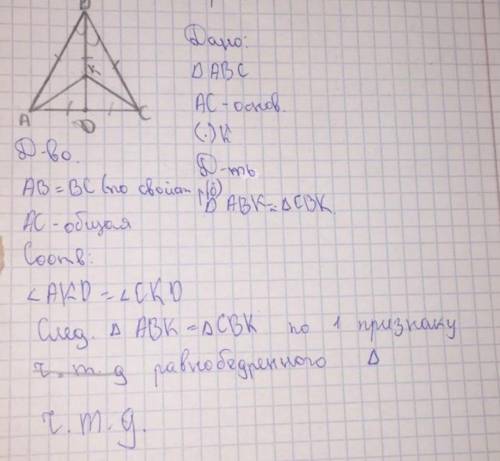 B
K
A
D
C
Дано:
Δ ABC
AC - основ.
(·) K
Д-ть
Δ ABK = Δ CBK.
Д-во.
AB = BC (по свойст р/б)
AC - общая
Соотв:
∠AKD = ∠CKD
След. Δ ABK = Δ CBK по 1 признаку
ч.т.д равнобедренного Δ
ч.т.д.